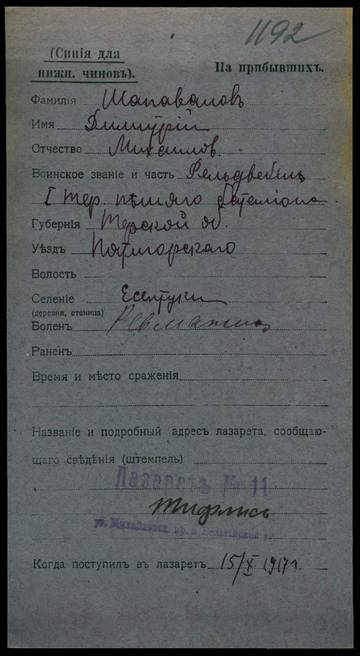 1192
(Синія для
нижн. чиновъ).
На прибывшихъ.
Фамилія Шаповаловъ
Имя Димитрій
Отчество Михаилов
Воинское званіе и часть Фельдвебель
I Тер. пѣшаго баталіона
Губернія Терской об.
Уѣздъ Пятигорскаго
Волость
Селеніе Есентуки
(деревня, станица)
Боленъ Ревматизм
Раненъ
Время и мѣсто сраженія
Названіе и подробный адресъ лазарета, сообщаю-
щаго свѣдѣнія (штемпель)
Лазаретъ № 11
Тифлисъ
ул.
Когда поступилъ въ лазаретъ 15/X 1917 г.